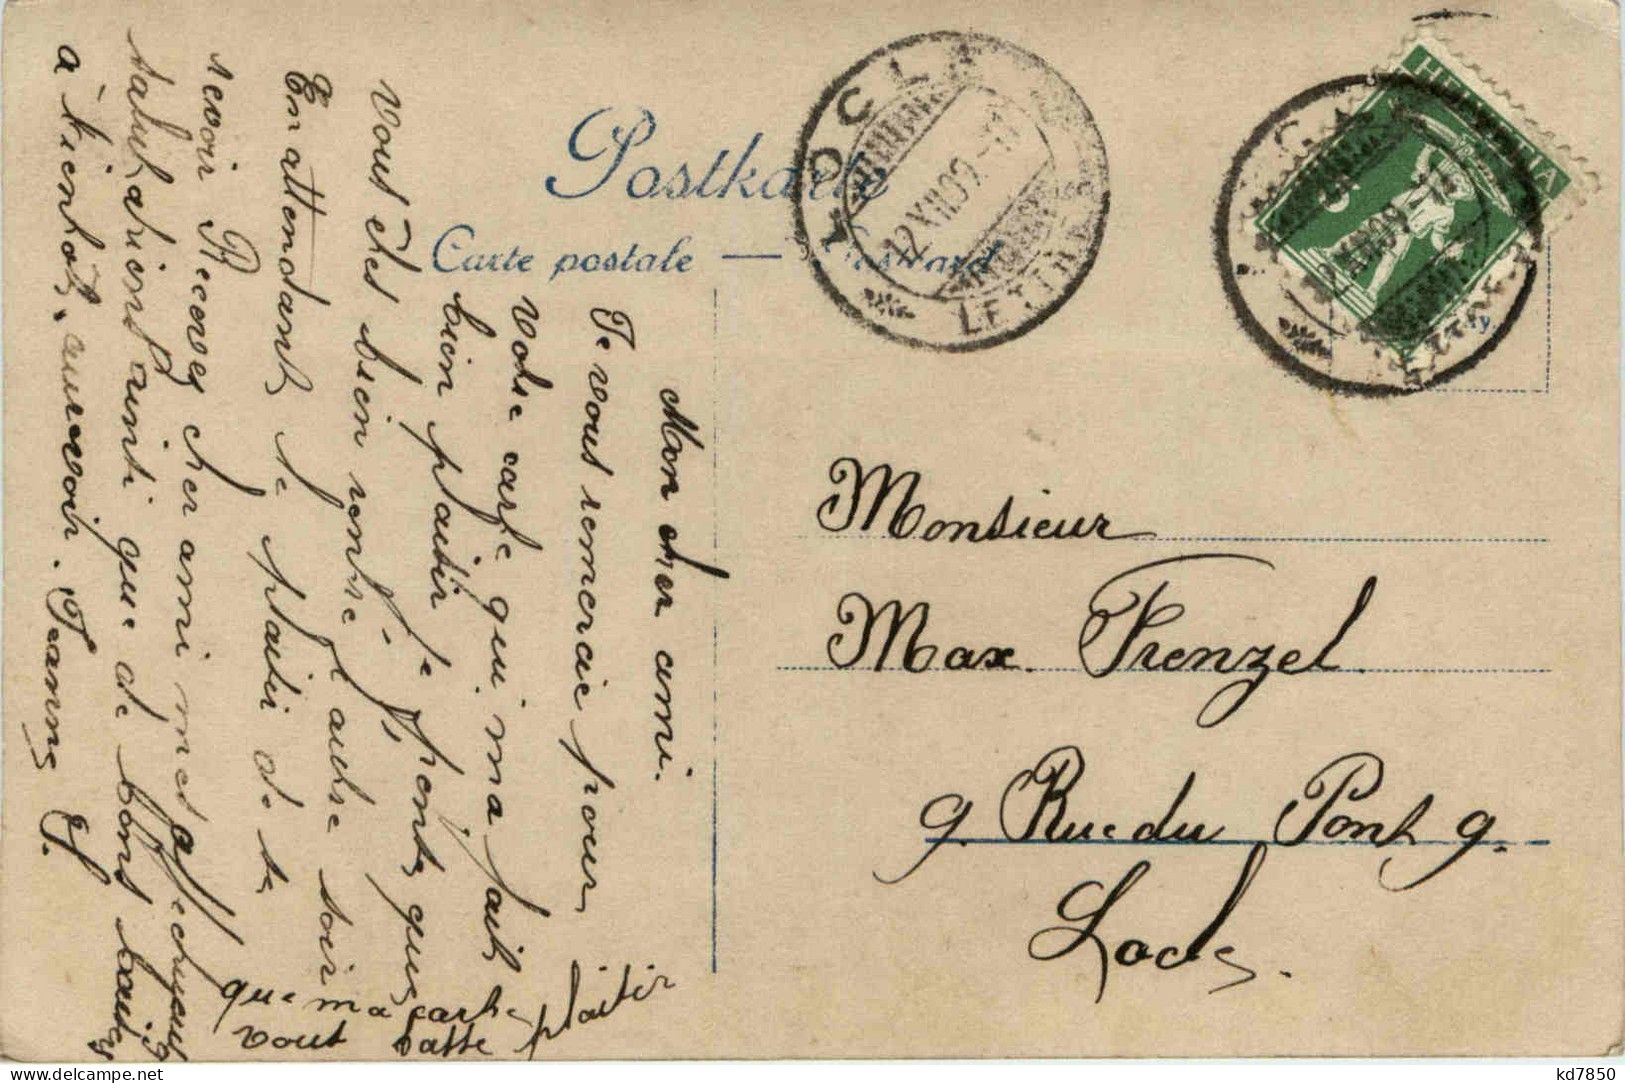 Postkarte
Carte postale —
LOCLE
12 XII 09
LETTRES
HELVETIA
Mon cher ami.
Je vous remercie pour
votre carte qui ma fait
bien plaisir je pense que
vous êtes bien rentré l'autre soir
En attendant le plaisir de te
revoir Recevez cher ami mes affectueuses
salutations ainsi que de bons baisers
à bientôt, aurevoir. Jeanne J.
que ma carte
vous fasse plaisir
Monsieur
Max. Frenzel
9. Rue du Pont 9.
Locle.
kd7850